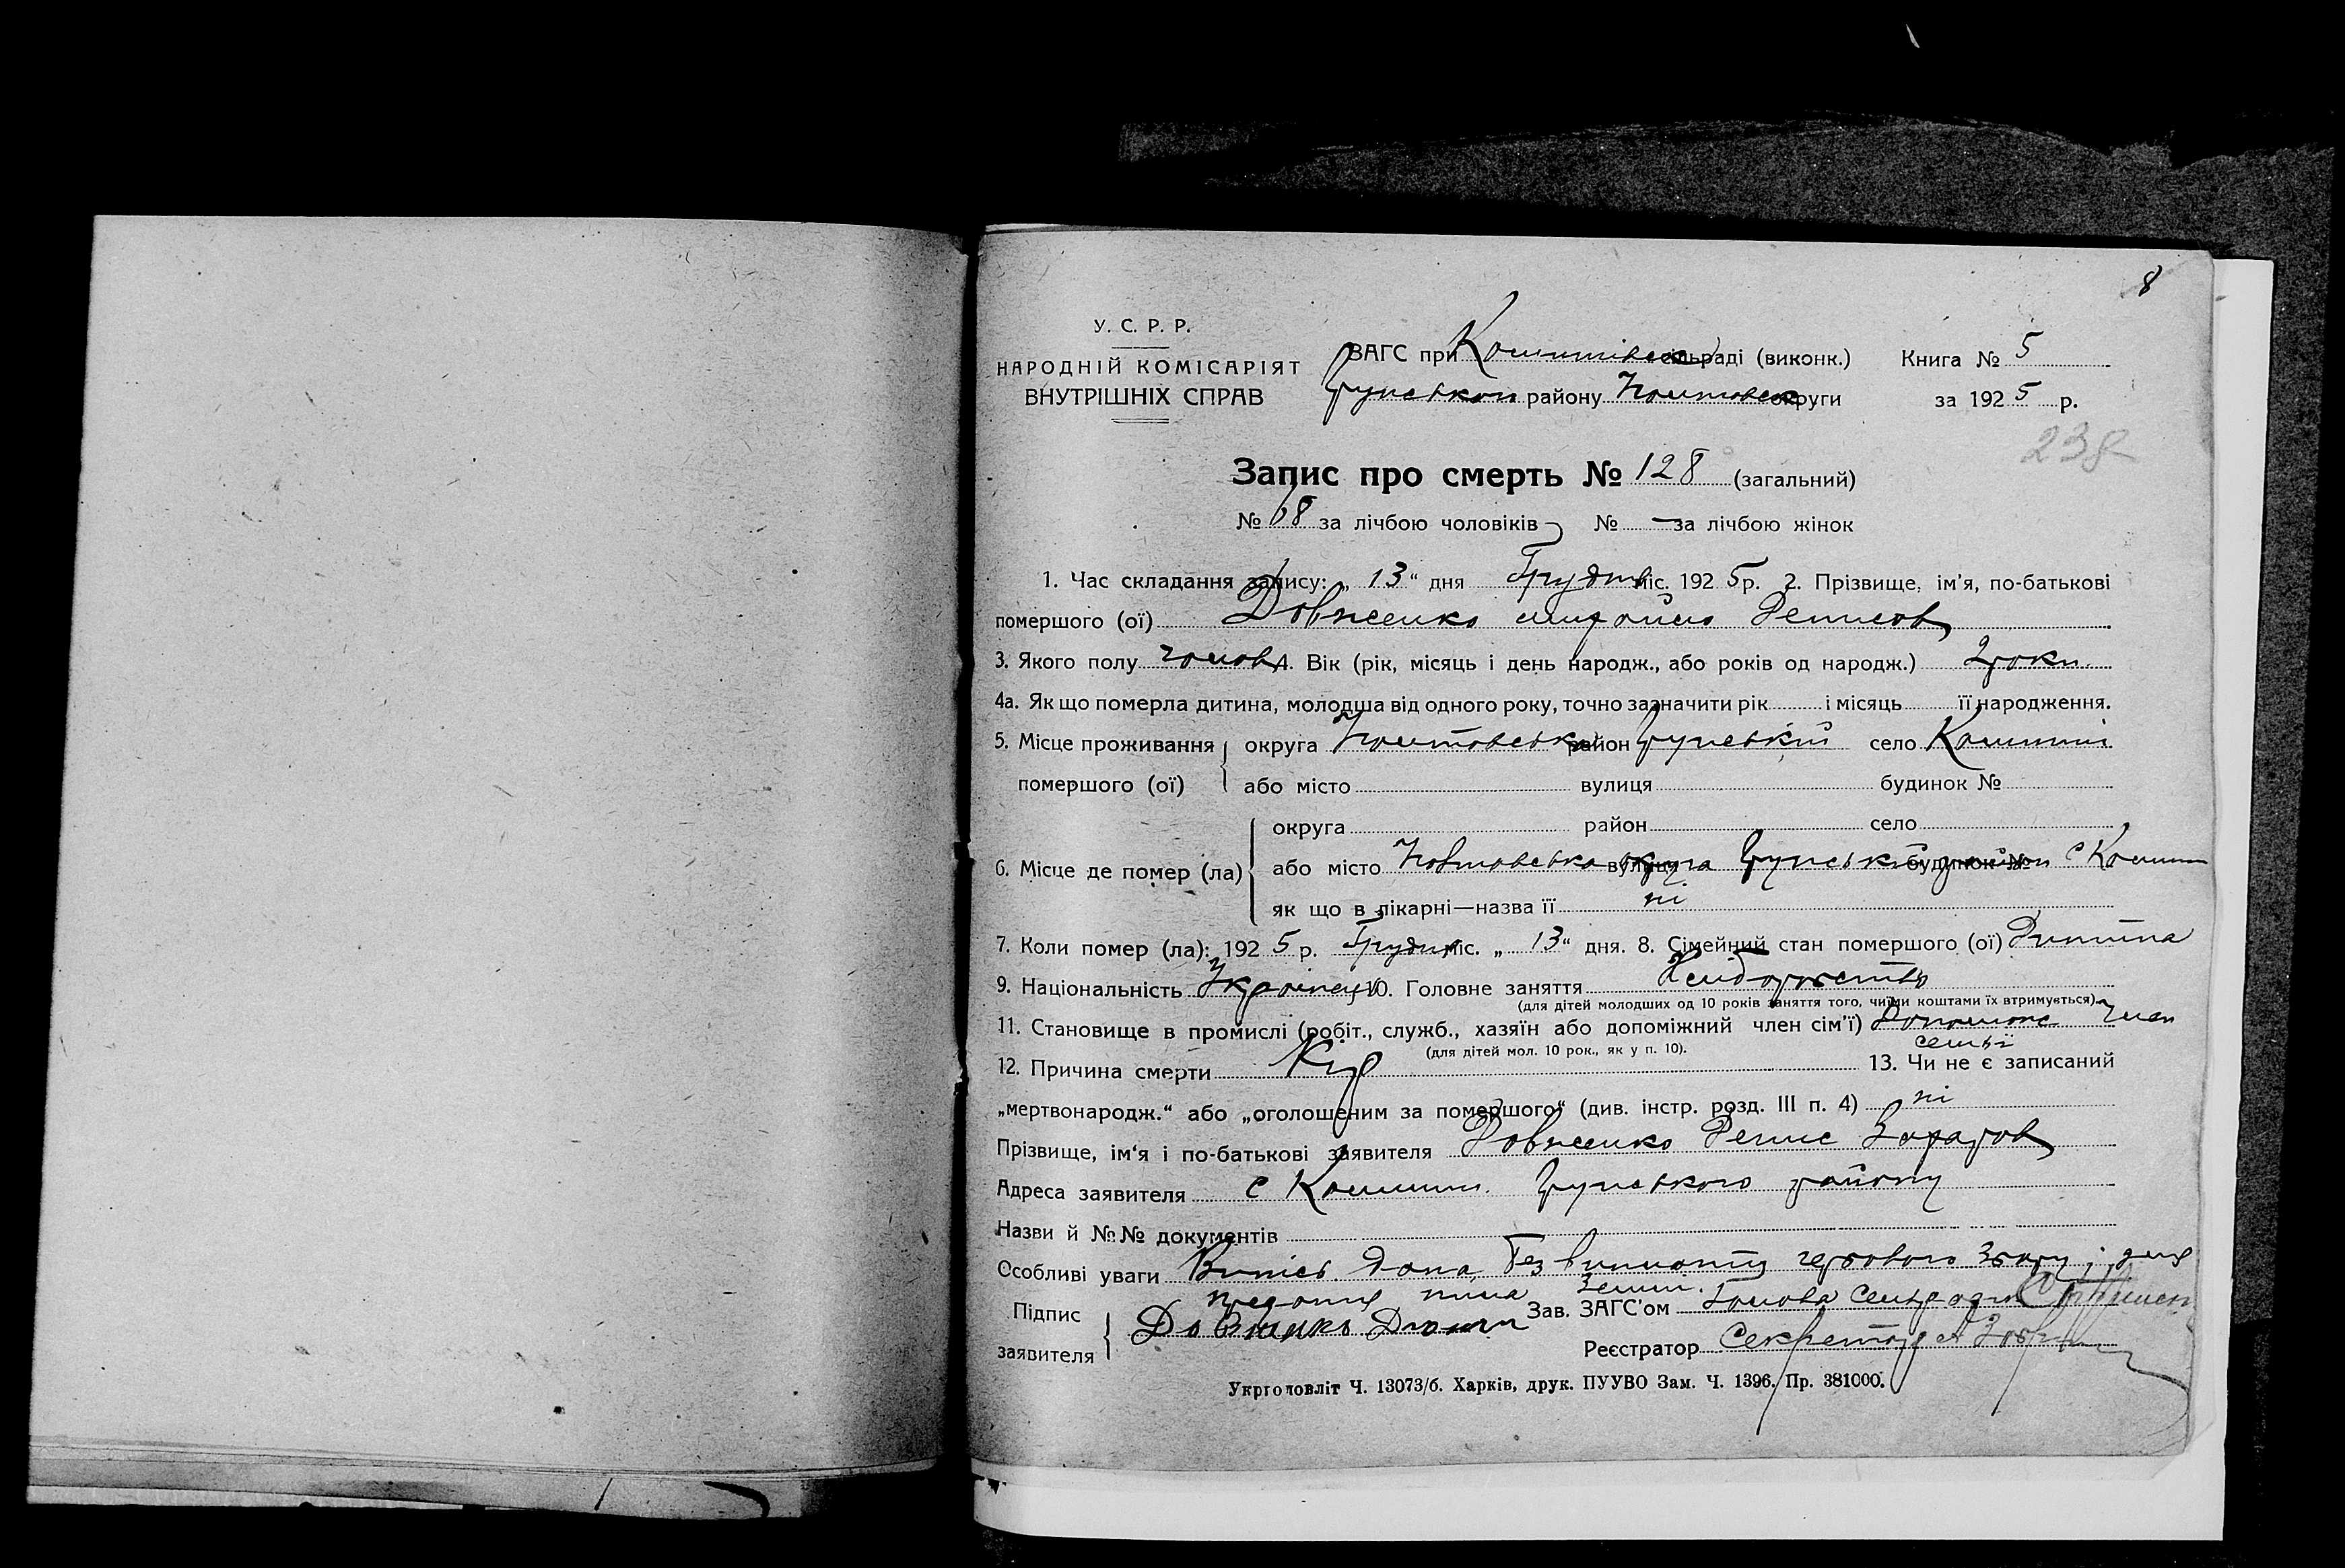 8
У. С. Р. Р.
НАРОДНІЙ КОМІСАРІЯТ
ВНУТРІШНІХ СПРАВ
ЗАГС при сільраді (виконк.) Книга № 5
району округи за 1925 р.
Запис про смерть № 128 (загальний)
№ 68 за лічбою чоловіків № — за лічбою жінок
1. Час складання запису: „ 13 “ дня Грудня міс. 1925 р. 2. Прізвище, ім'я, по-батькові
помершого (ої) Довженко Денисов
3. Якого полу чолов 4. Вік (рік, місяць і день народж., або років од народж.) 2 роки
4а. Як що померла дитина, молодша від одного року, точно зазначити рік і місяць її народження.
5. Місце проживання округа Полтовська район Грунський село
помершого (ої) або місто вулиця будинок №
округа район село
6. Місце де помер (ла) або місто Полтовська вулиця округа Грунський будинок № район с
як що в лікарні—назва її ні
7. Коли помер (ла): 1925 р. Грудня міс. „ 13 “ дня. 8. Сімейний стан помершого (ої) Дитина
9. Національність Українець 10. Головне заняття
(для дітей молодших од 10 років заняття того, чиїми коштами їх втримується).
11. Становище в промислі (робіт., служб., хазяїн або допоміжний член сім'ї) Допомож член
семьї
(для дітей мол. 10 рок., як у п. 10).
12. Причина смерти Кір 13. Чи не є записаний
„мертвонародж.“ або „оголошеним за помершого“ (див. інстр. розд. III п. 4) ні
Прізвище, ім'я і по-батькові заявителя Довженко Денис Захаров
Адреса заявителя с Грунського району
Назви й №№ документів
Особливі уваги Випись дана без гербового збору і для
преданія тіла землі.
Підпис Зав. ЗАГС'ом Голова Сельради
заявителя Довженко
Реєстратор Секретарь
Укрголовліт Ч. 13073/б. Харків, друк. ПУУВО Зам. Ч. 1396. Пр. 381000.